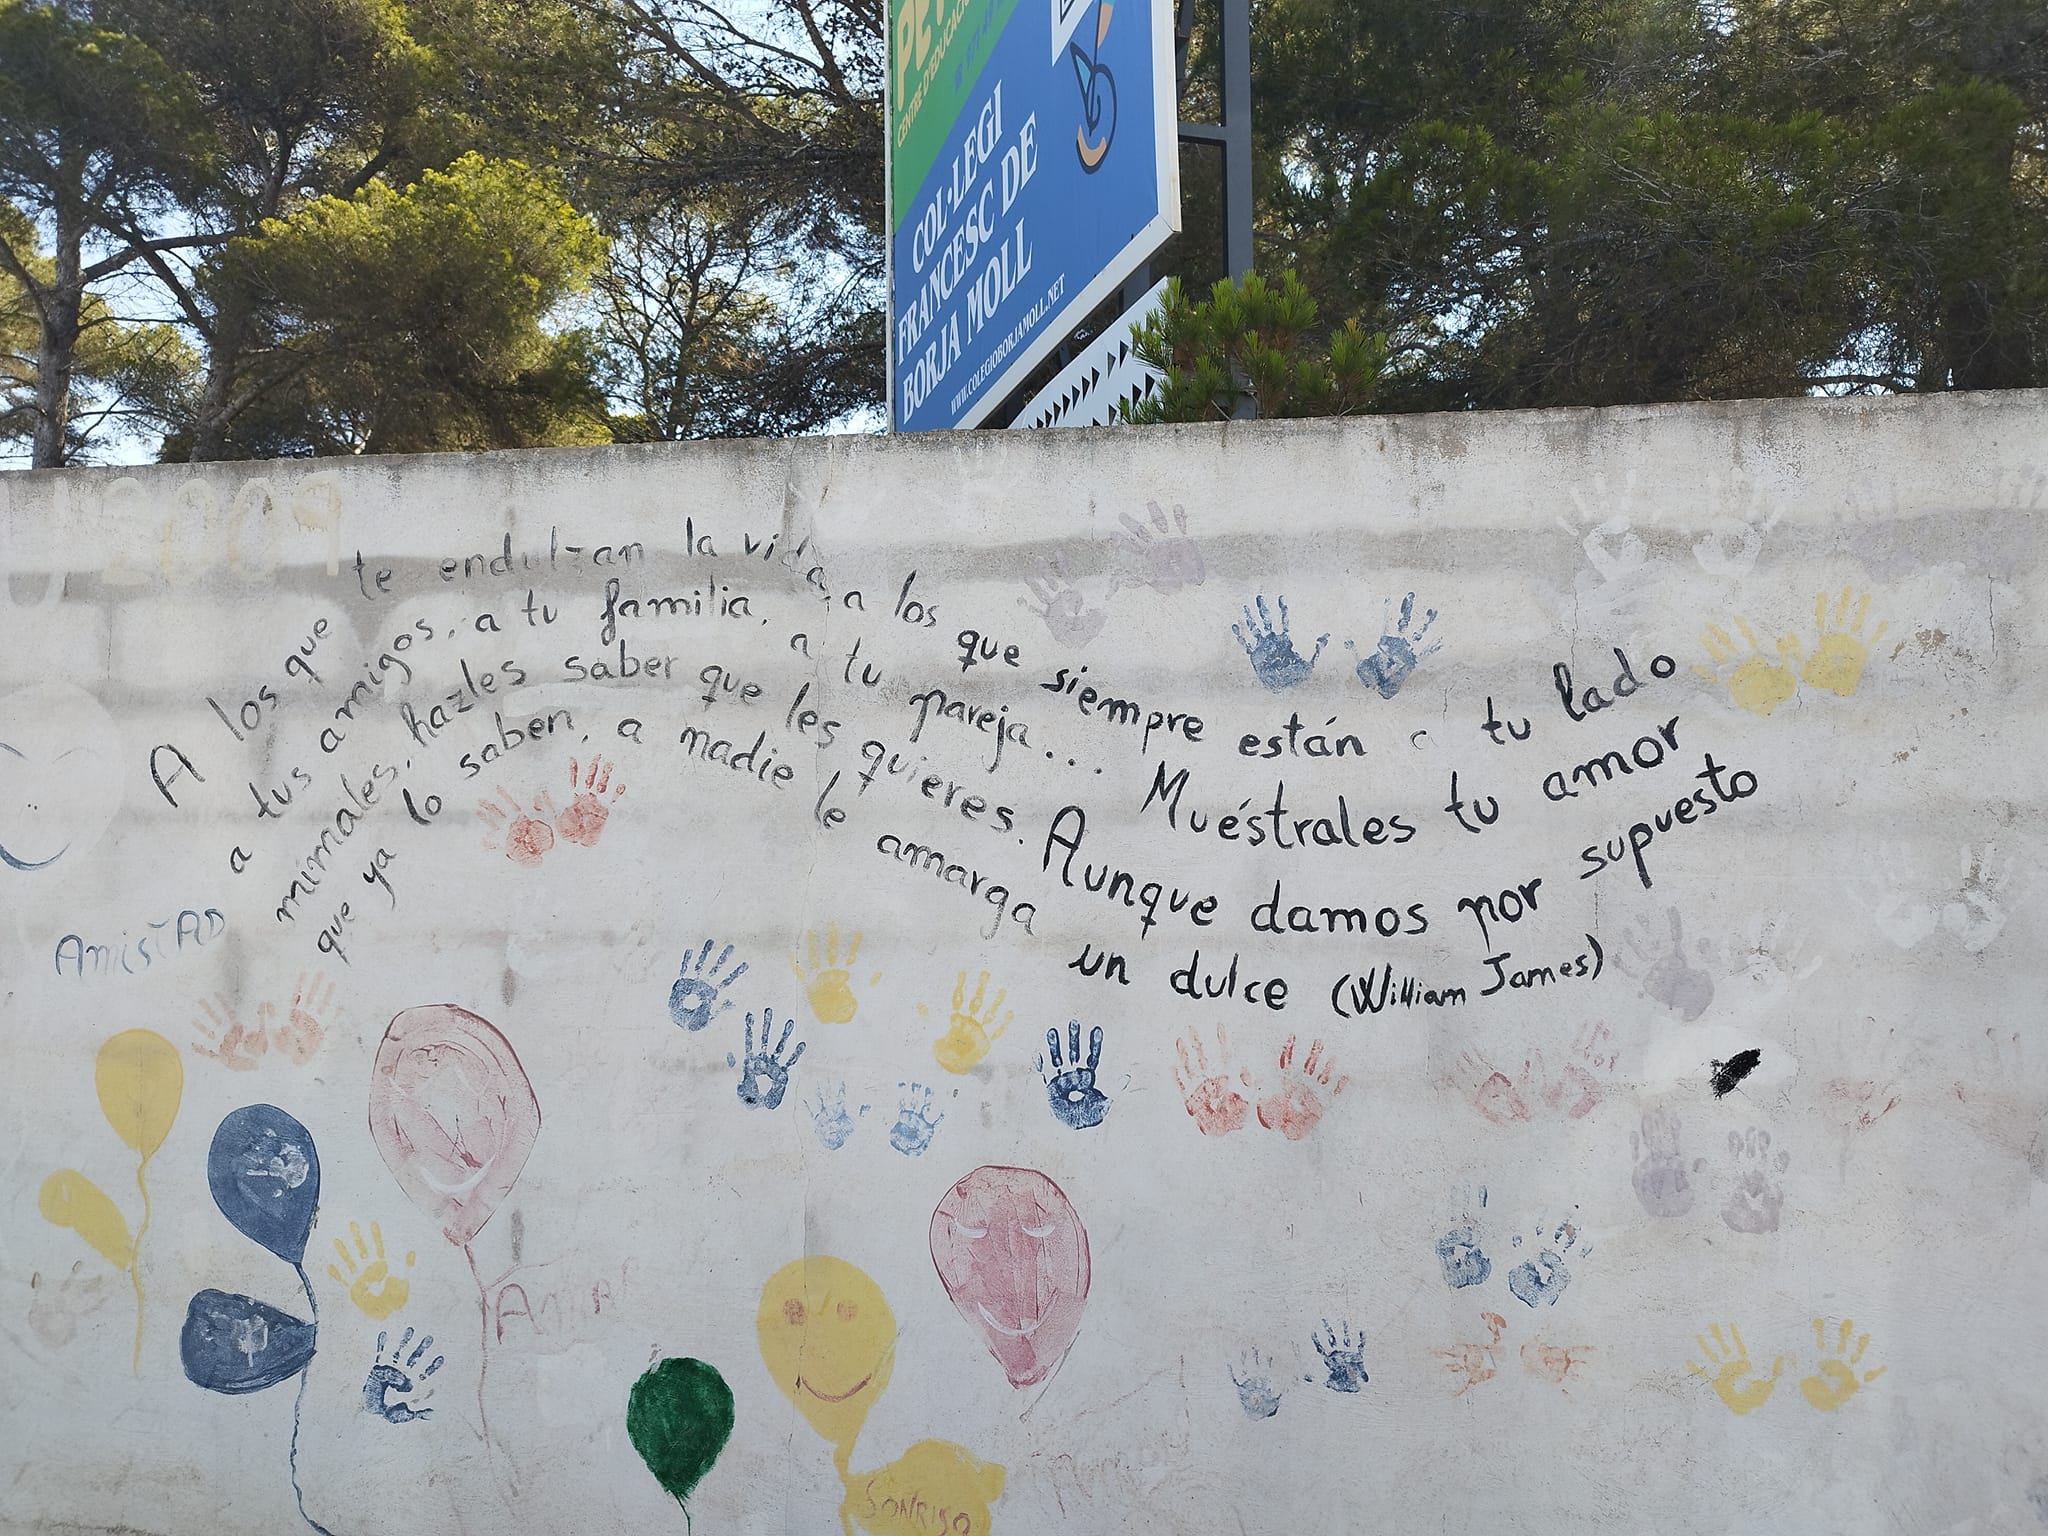 CENTRE D'EDUCACIÓ
COL·LEGI
FRANCESC DE
BORJA MOLL
WWW.COLEGIOBORJAMOLL.NET
2009
A los que te endulzan la vida, a los que siempre están a tu lado
a tus amigos, a tu familia, a tu pareja... Muéstrales tu amor
mímales, hazles saber que les quieres. Aunque damos por supuesto
que ya lo saben, a nadie le amarga un dulce (William James)
AmisTAD
AMAR
SONRISA